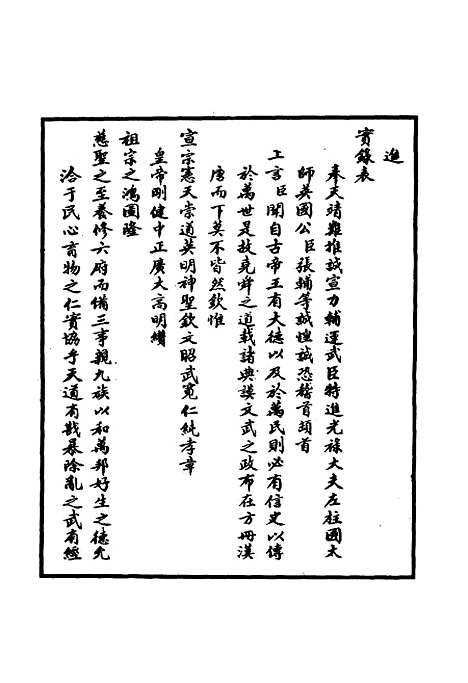 進
實錄表
奉天靖難推誠宣力輔運武臣特進光祿大夫左柱國太
師英國公臣張輔等誠惶誠恐稽首頓首
上言臣聞自古帝王有大德以及於萬民則必有信史以傳
於萬世是故堯舜之道載諸典謨文武之政布在方冊漢
唐而下莫不皆然欽惟
宣宗憲天崇道英明神聖欽文昭武寬仁純孝章
皇帝剛健中正廣大高明纘
祖宗之鴻圖隆
慈聖之至養修六府而備三事親九族以和萬邦好生之德允
洽于民心育物之仁實協乎天道有戡暴除亂之武有經